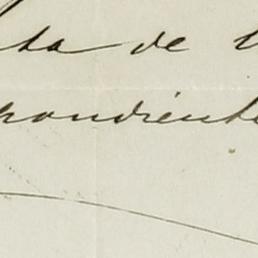 ta de l
pondiente